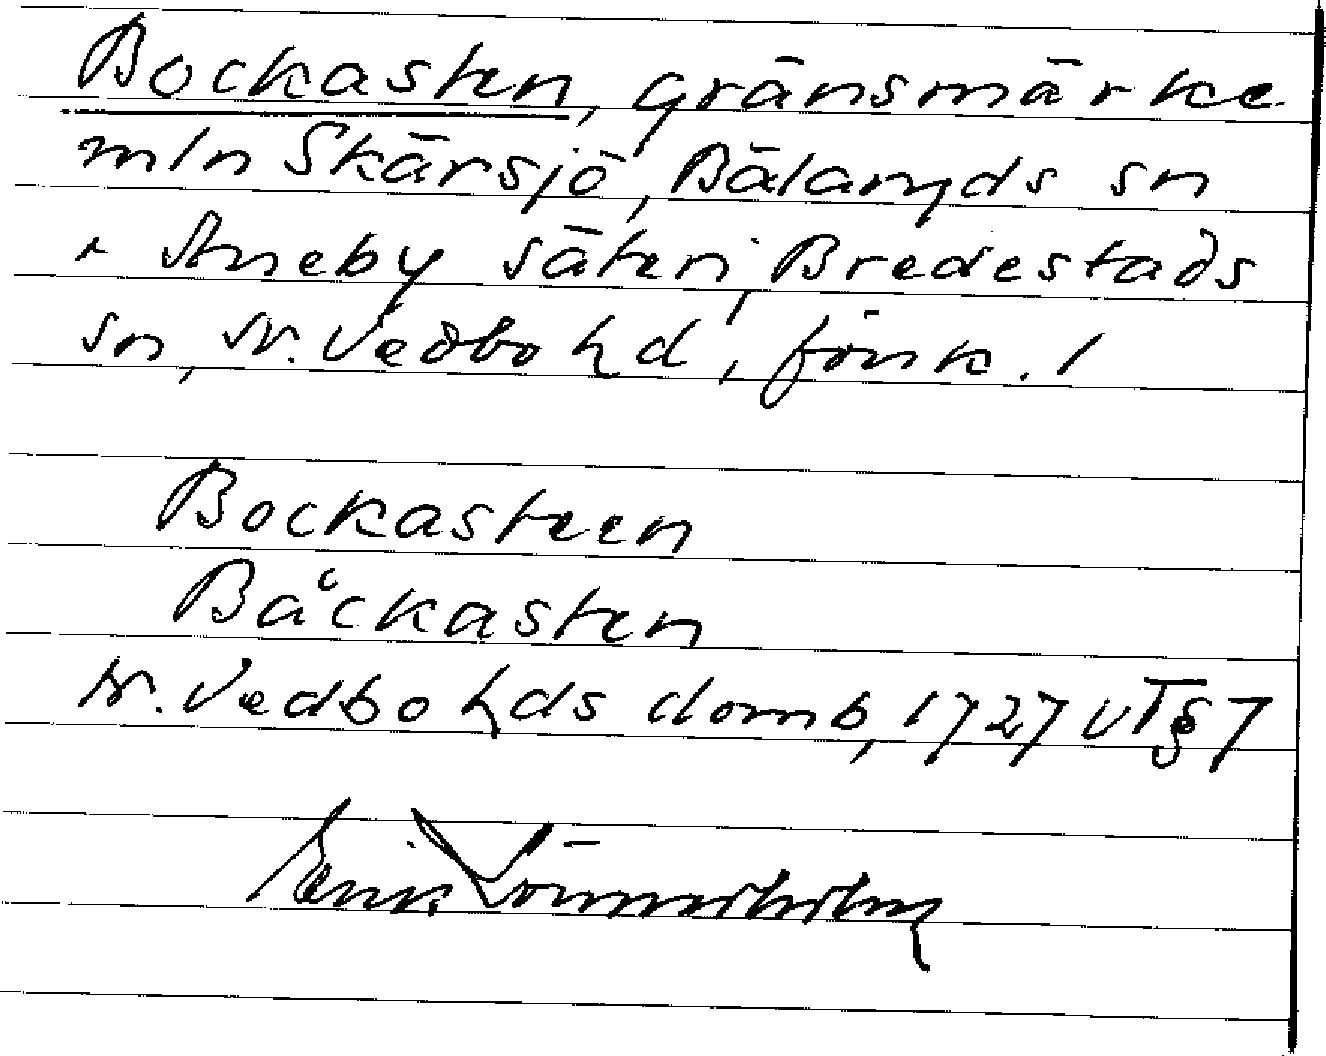 Bockasten, gränsmärke
mln Skärsjö, Bälaryds sn
Aneby säteri, Bredestads
sn, N. Vedbo hd, Jönk. l
Bockasteen
Båckasten
N. Vedbo hds domb, 1727 VT § 7